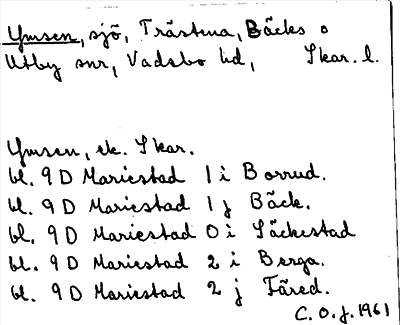 Ymsen, sjö, Trästena, Bäcks o
Utby snr, Vadsbo hd, Skar. l.
Ymsen, ek. Skar.
bl. 9D Mariestad 1 i Borrud.
bl. 9D Mariestad 1 j Bäck.
bl. 9D Mariestad 0 i Säckestad
bl. 9D Mariestad 2 i Berga.
bl. 9D Mariestad 2 j Färed.
C. O. J. 1961